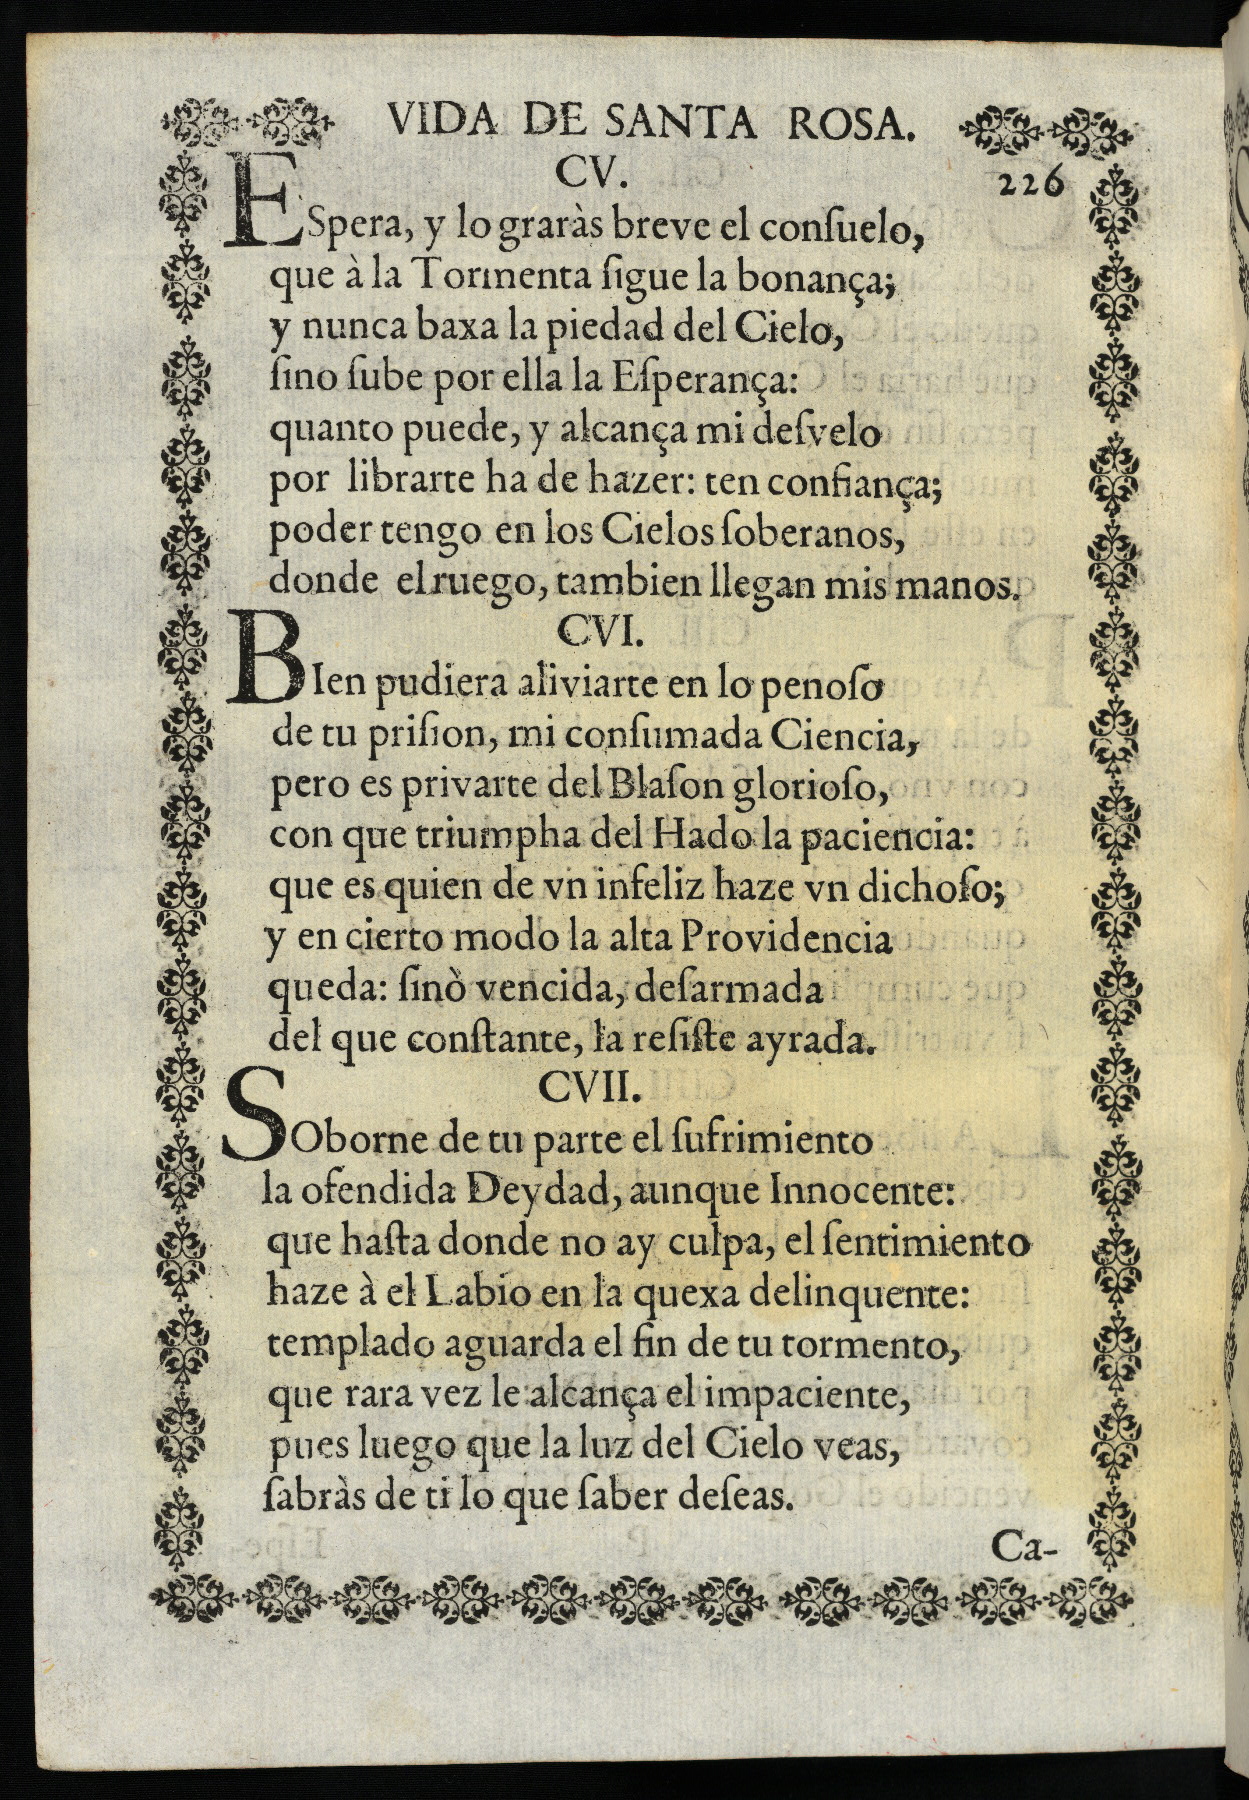 VIDA DE SANTA ROSA.
CV.
226
ESpera, y lo graràs breve el conſuelo,
que à la Tormenta ſigue la bonança;
y nunca baxa la piedad del Cielo,
ſino ſube por ella la Eſperança:
quanto puede, y alcança mi deſvelo
por librarte ha de hazer: ten confiança;
poder tengo en los Cielos ſoberanos,
donde el ruego, tambien llegan mis manos.
CVI.
BIen pudiera aliviarte en lo penoſo
de tu priſion, mi conſumada Ciencia,
pero es privarte del Blaſon glorioſo,
con que triumpha del Hado la paciencia:
que es quien de vn infeliz haze vn dichoſo;
y en cierto modo la alta Providencia
queda: ſinò vencida, deſarmada
del que conſtante, la reſiſte ayrada.
CVII.
SOborne de tu parte el ſufrimiento
la ofendida Deydad, aunque Innocente:
que haſta donde no ay culpa, el ſentimiento
haze à el Labio en la quexa delinquente:
templado aguarda el fin de tu tormento,
que rara vez le alcança el impaciente,
pues luego que la luz del Cielo veas,
ſabràs de ti lo que ſaber deſeas.
Ca-